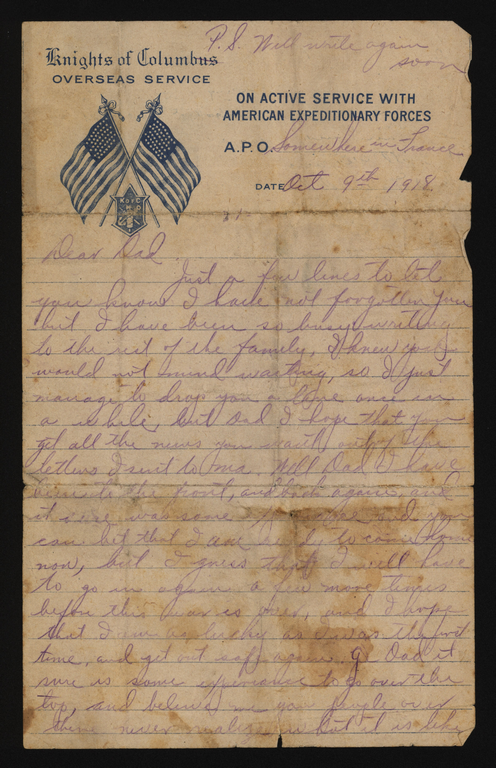 P.S. Will write again
soon
Knights of Columbus
OVERSEAS SERVICE
ON ACTIVE SERVICE WITH
AMERICAN EXPEDITIONARY FORCES
A.P.O. Somewhere in France
DATE Oct 9th 1918
K of C
Dear Dad
Just a few lines to let
you know I have not forgotten you
but I have been so busy writing
to the rest of the family, I knew you
would not mind waiting, so I just
manage to drop you a line once in
a while, but Dad I hope that you
get all the news you want out of the
letters I sent to ma. Well Dad I have
been to the front, and back again, and
it sure was some and you
can bet that I am to come home
now, but I guess that I will have
to go in again a few more times
before this war is over, and I hope
that I am as lucky as I was the first
time, and get out safe again. Dad it
sure is some experience to go over the
top, and believe me you people over
there never realize what it is like